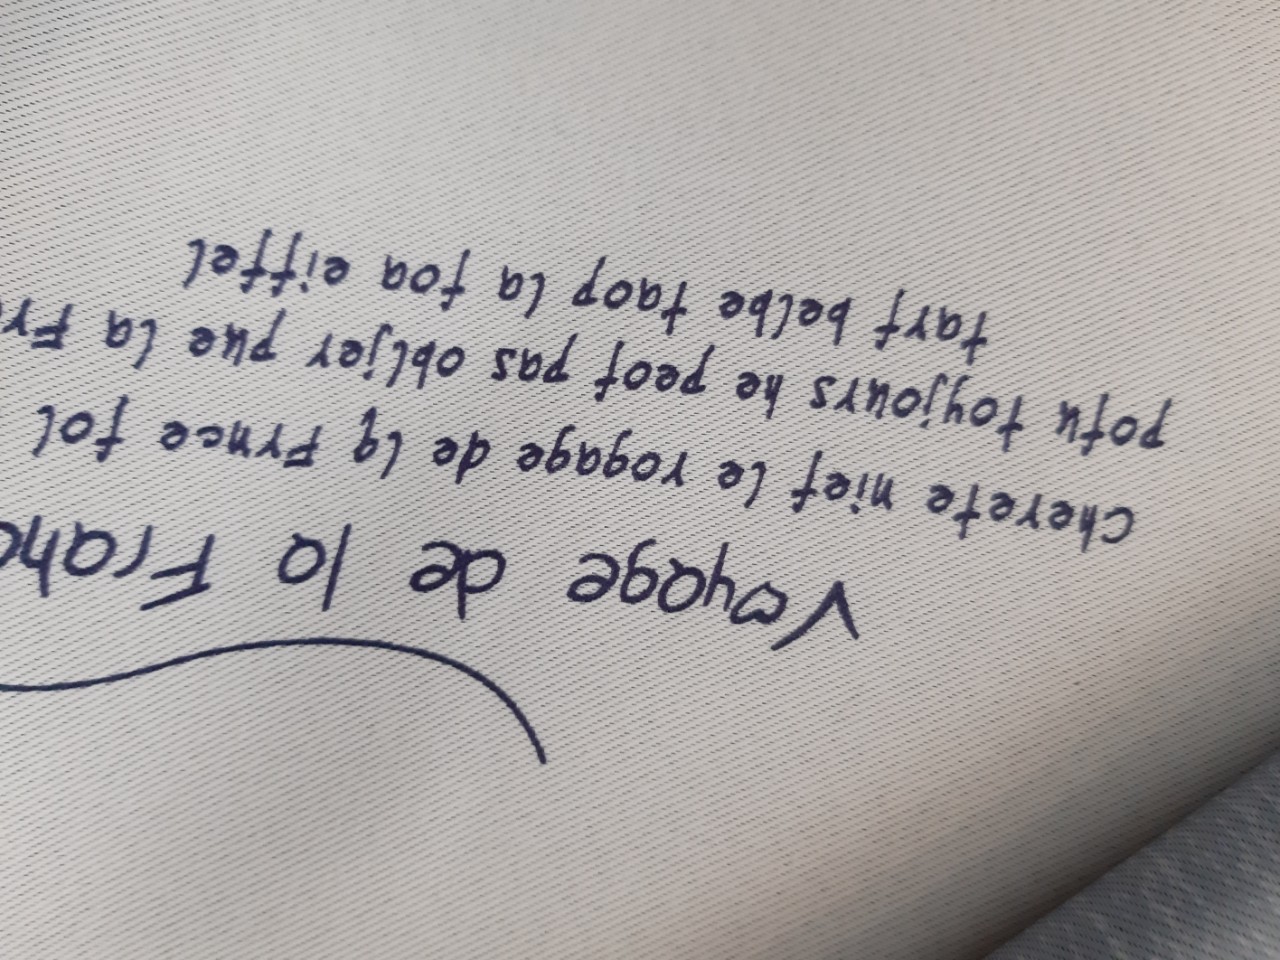 Voyage de la Franc
Cherete nief le rogage de lq Frnce fol
pofu foyjours he peof pas obljer pue la Fr
farf belbe faop la foa eiffel